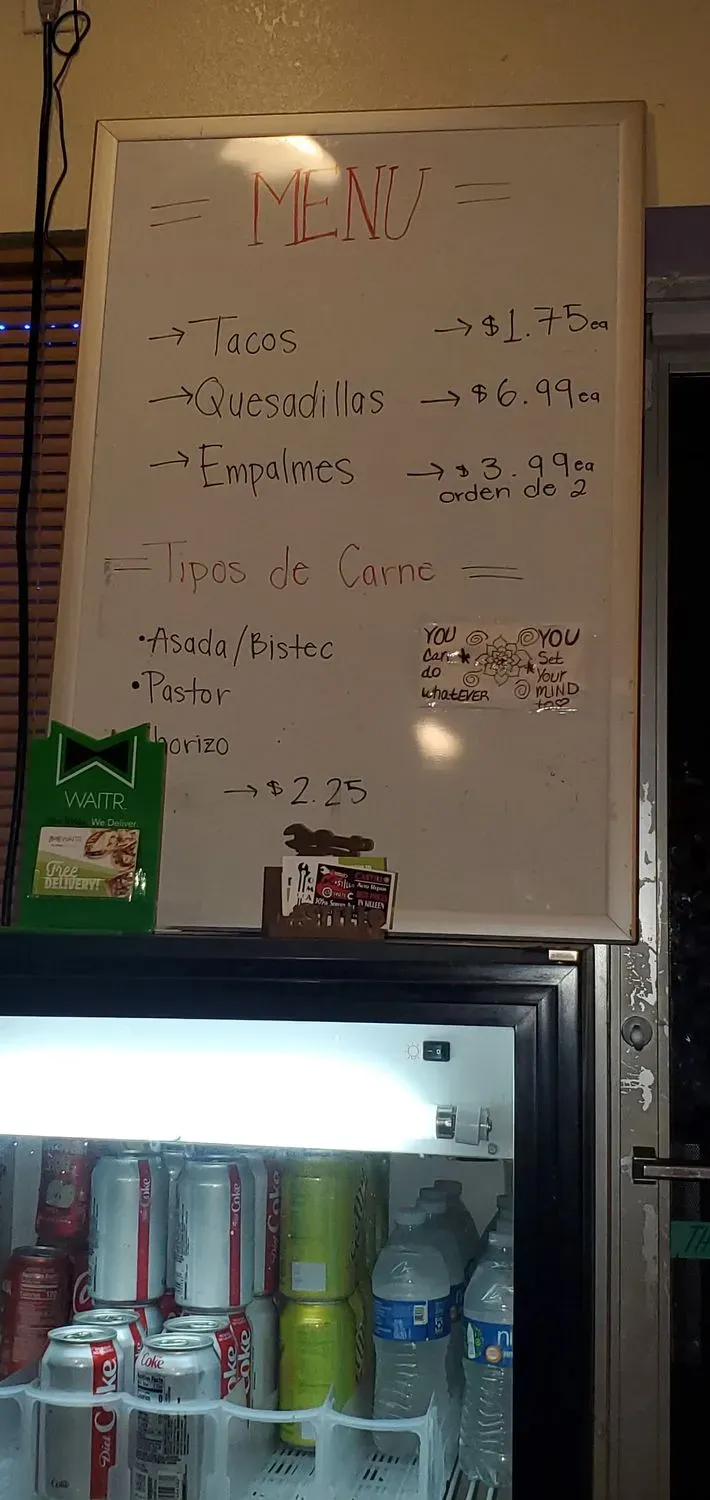 = MENU =
→ Tacos → $1.75 ea
→ Quesadillas → $6.99 ea
→ Empalmes → $3.99 ea
orden de 2
= Tipos de Carne =
• Asada/Bistec
• Pastor
horizo
→ $2.25
YOU
Can
do
whatEVER
YOU
Set
Your
MiND
to
WAITR
We Deliver.
Free
DELIVERY!
Auto Repair
IN KILLEEN
Coke
Diet Coke
Coke
Diet Coke
Coke